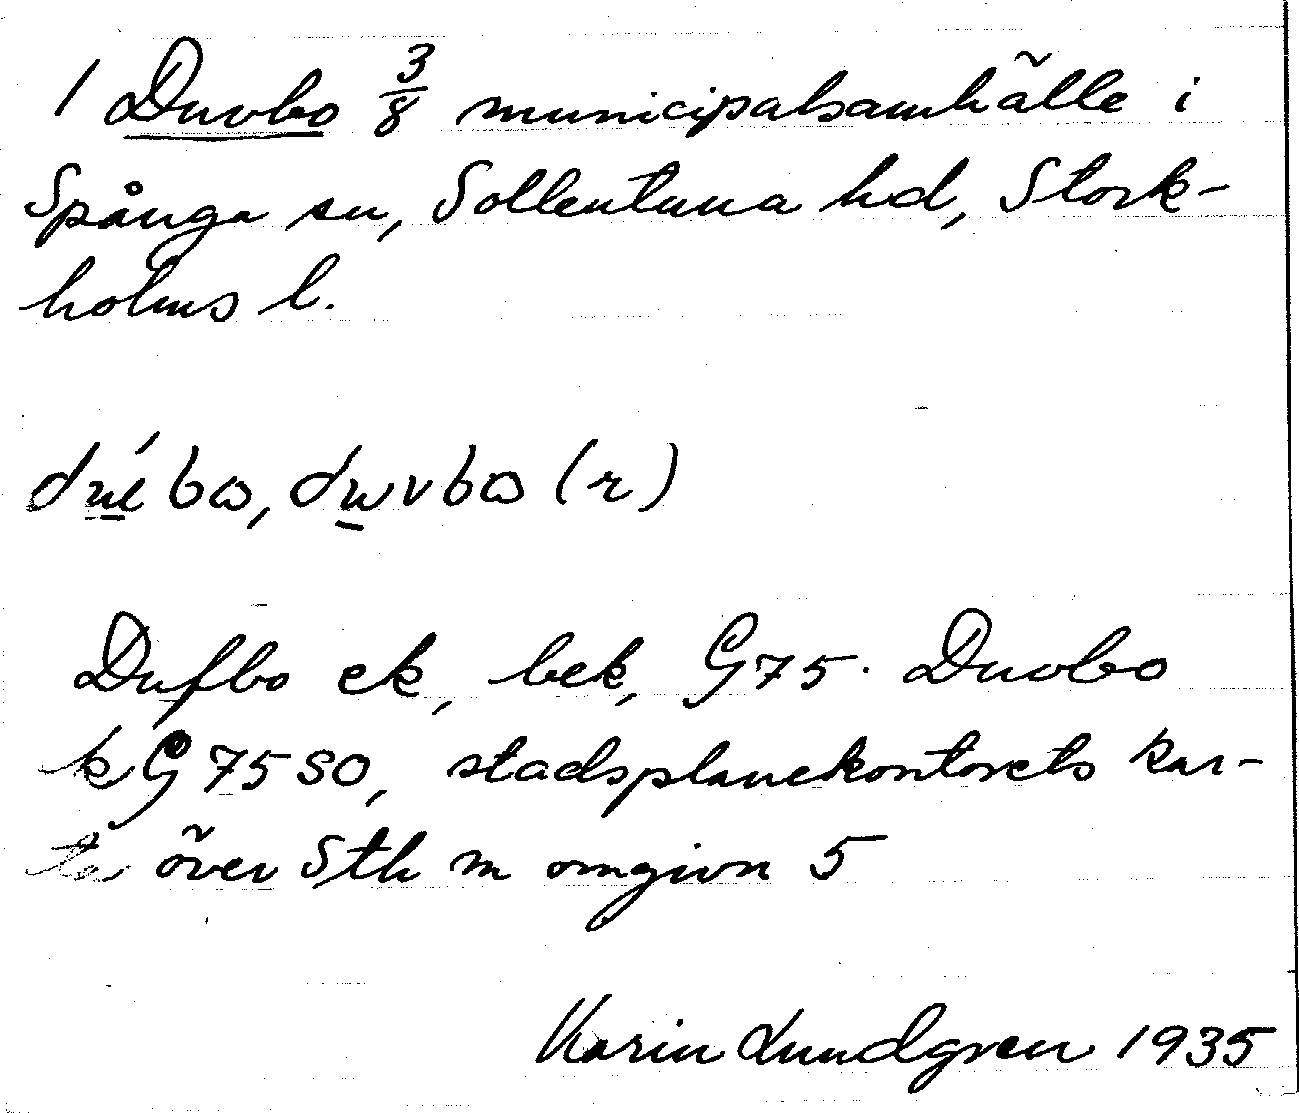 1 Duvbo 3/8 municipalsamhälle i
Spånga sn, Sollentuna hd, Stock-
holms l.
dúbω, duvbω (r)
Dufbo ek, bek, G75. Duvbo
k G 75 SO, stadsplanekontorets kar-
ta över Sth m omgivn 5
Karin Lundgren 1935